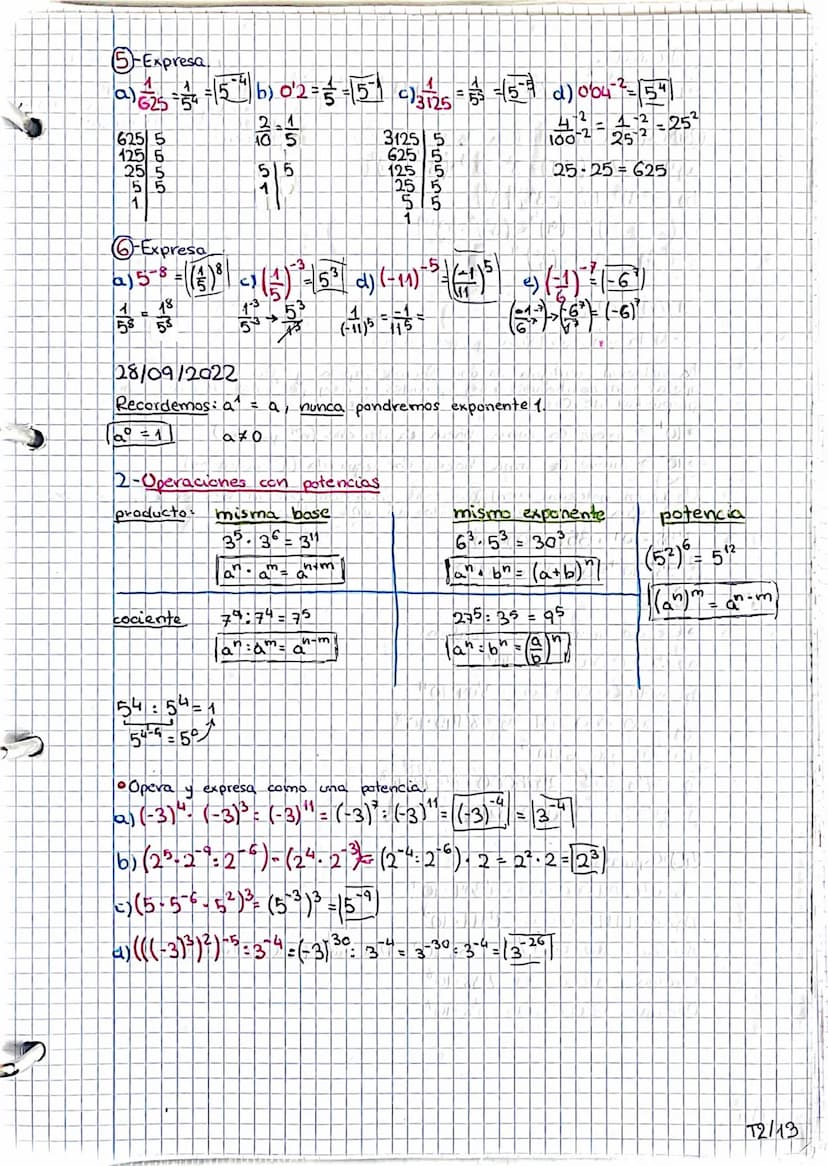 5-Expresa.
a) 1/625 = 1/5⁴ = 5⁻⁴ b) 0'2 = 1/5 = 5⁻¹ c) 1/3125 = 1/5⁵ = 5⁻⁵ d) 0'04⁻² = 5⁴
2/10 = 1/5 4⁻²/100⁻² = 1⁻²/25⁻² = 25²
625 | 5 3125 | 5
125 | 5 625 | 5
25 | 5 5 | 5 125 | 5 25 · 25 = 625
5 | 5 1 | 25 | 5
1 | 5 | 5
1
6-Expresa
a) 5⁻⁸ = (1/5)⁸ c) (1/5)⁻³ = 5³ d) (-11)⁻⁵ = (-1/11)⁵ e) (-1/6)⁻⁷ = (-6⁷)
1/5⁸ = 1⁸/5⁸ 1⁻³/5⁻³ → 5³/1³ 1/(-11)⁵ = -1/11⁵ = (-1⁻⁷/6⁻⁷) → (-6⁷/1⁷) = (-6)⁷
28/09/2022
Recordemos: a¹ = a, nunca pondremos exponente 1.
a⁰ = 1 a ≠ 0
2-Operaciones con potencias
producto: misma base mismo exponente potencia
3⁵ · 3⁶ = 3¹¹ 6³ · 5³ = 30³ (5²)⁶ = 5¹²
aⁿ · aᵐ = aⁿ⁺ᵐ aⁿ · bⁿ = (a+b)ⁿ (aⁿ)ᵐ = aⁿ⁻ᵐ
cociente 7⁹ : 7⁴ = 7⁵ 27⁵ : 3⁵ = 9⁵
aⁿ : aᵐ = aⁿ⁻ᵐ aⁿ : bⁿ = (a/b)ⁿ
5⁴ : 5⁴ = 1
5⁴⁻⁴ = 5⁰
•Opera y expresa como una potencia.
a) (-3)⁴ · (-3)³ : (-3)¹¹ = (-3)⁷ : (-3)¹¹ = (-3)⁻⁴ = 3⁻⁴
b) (2⁵ · 2⁻⁹ : 2⁻⁶) · (2⁴ · 2⁻³) = (2⁻⁴ : 2⁻⁶) · 2 = 2² · 2 = 2³
c) (5 · 5⁻⁶ · 5²)³ = (5⁻³)³ = 5⁻⁹
d) (((-3)³)²)⁻⁵ : 3⁻⁴ = (-3)⁻³⁰ : 3⁻⁴ = 3⁻³⁰ : 3⁻⁴ = 3⁻²⁶
T2/13